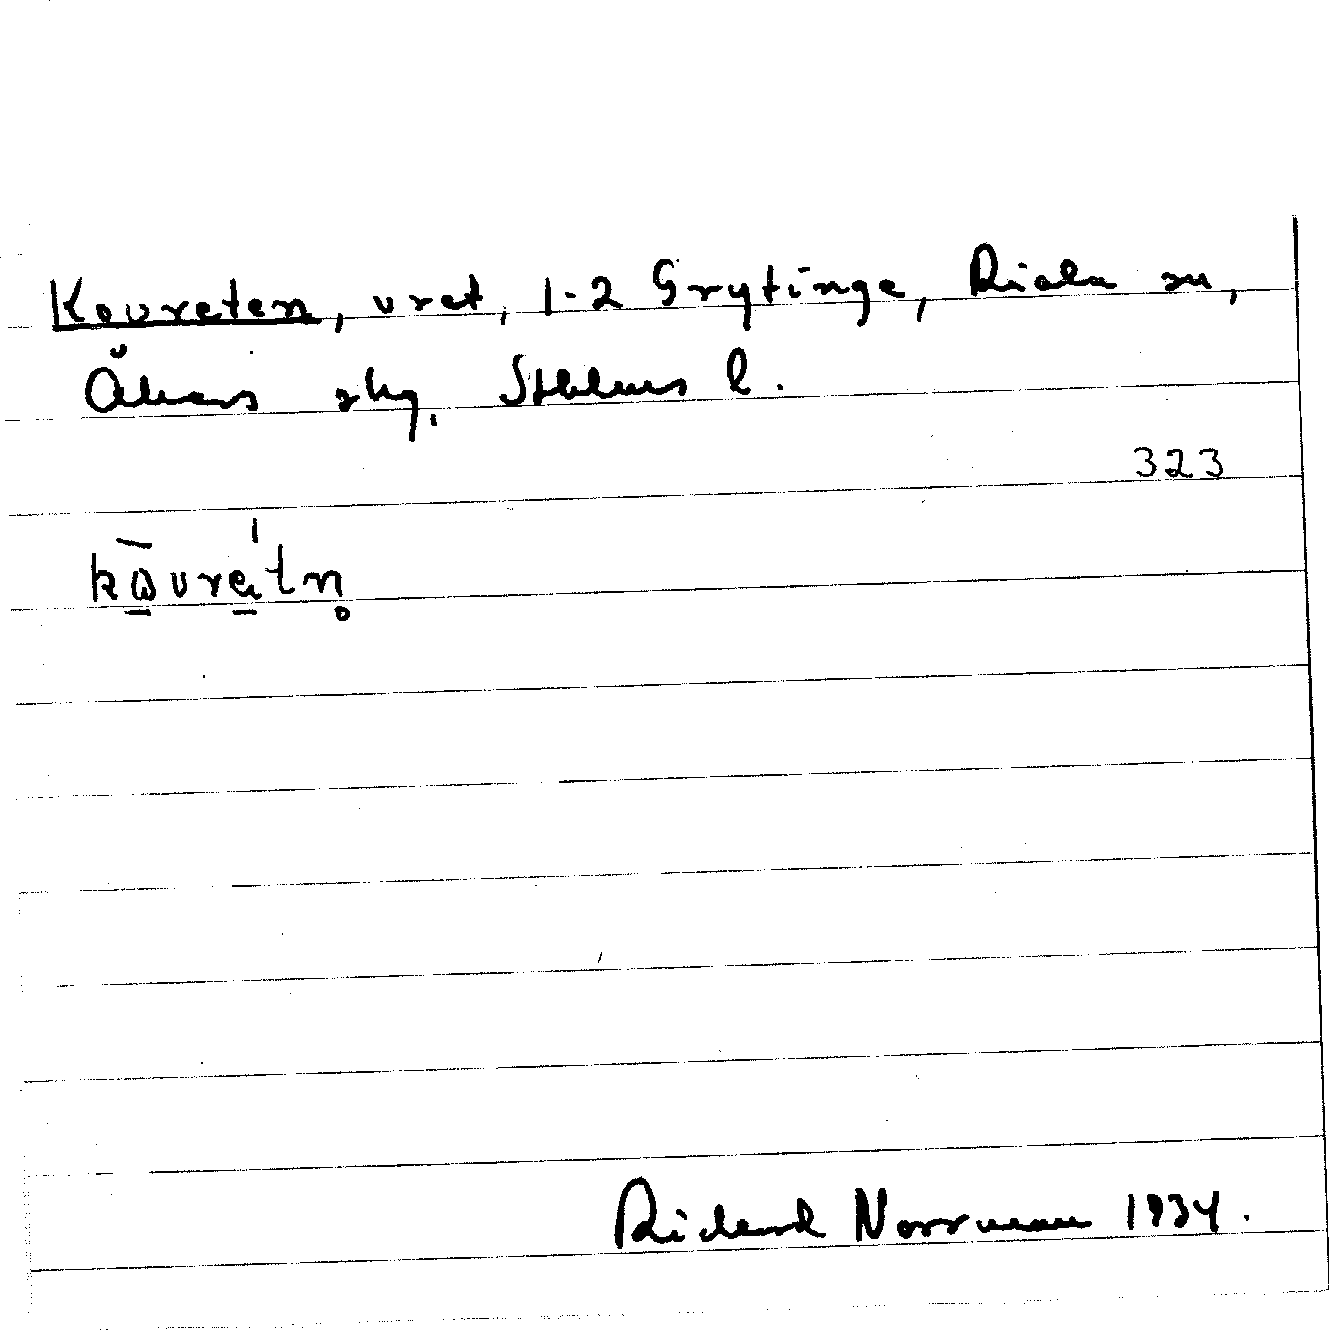 Kovreten, vret, 1-2 Grytinge, Riala sn,
Åkers skg. Sthlms l.
323
kωvrétn̥
Rickard Norrman 1934.